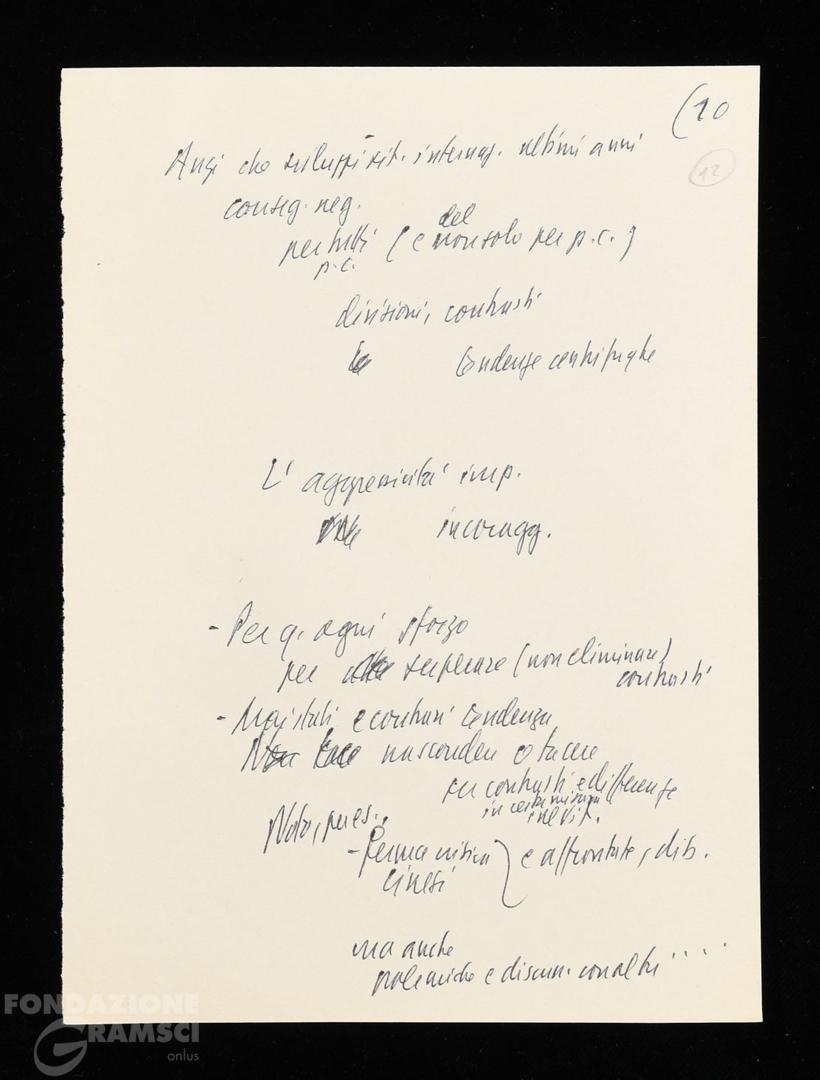 (10
12
Anzi che sviluppi sit. internaz. ultimi anni
conseg. neg.
del
per tutti (e non solo per p.c.)
p.c.
divisioni, contrasti
tendenze centrifughe
L' aggressività imp.
incoragg.
- Per q. ogni sforzo
per superare (non eliminare)
contrasti
- Mai stati e contrari tendenza
Non nascondere o tacere
su contrasti e differenze
in certa misura
inevit.
Noto, per es.,
- ferma critica } e affrontate, dib.
cinesi
ma anche
polemiche e discuss. con altri ....
FONDAZIONE
GRAMSCI
onlus